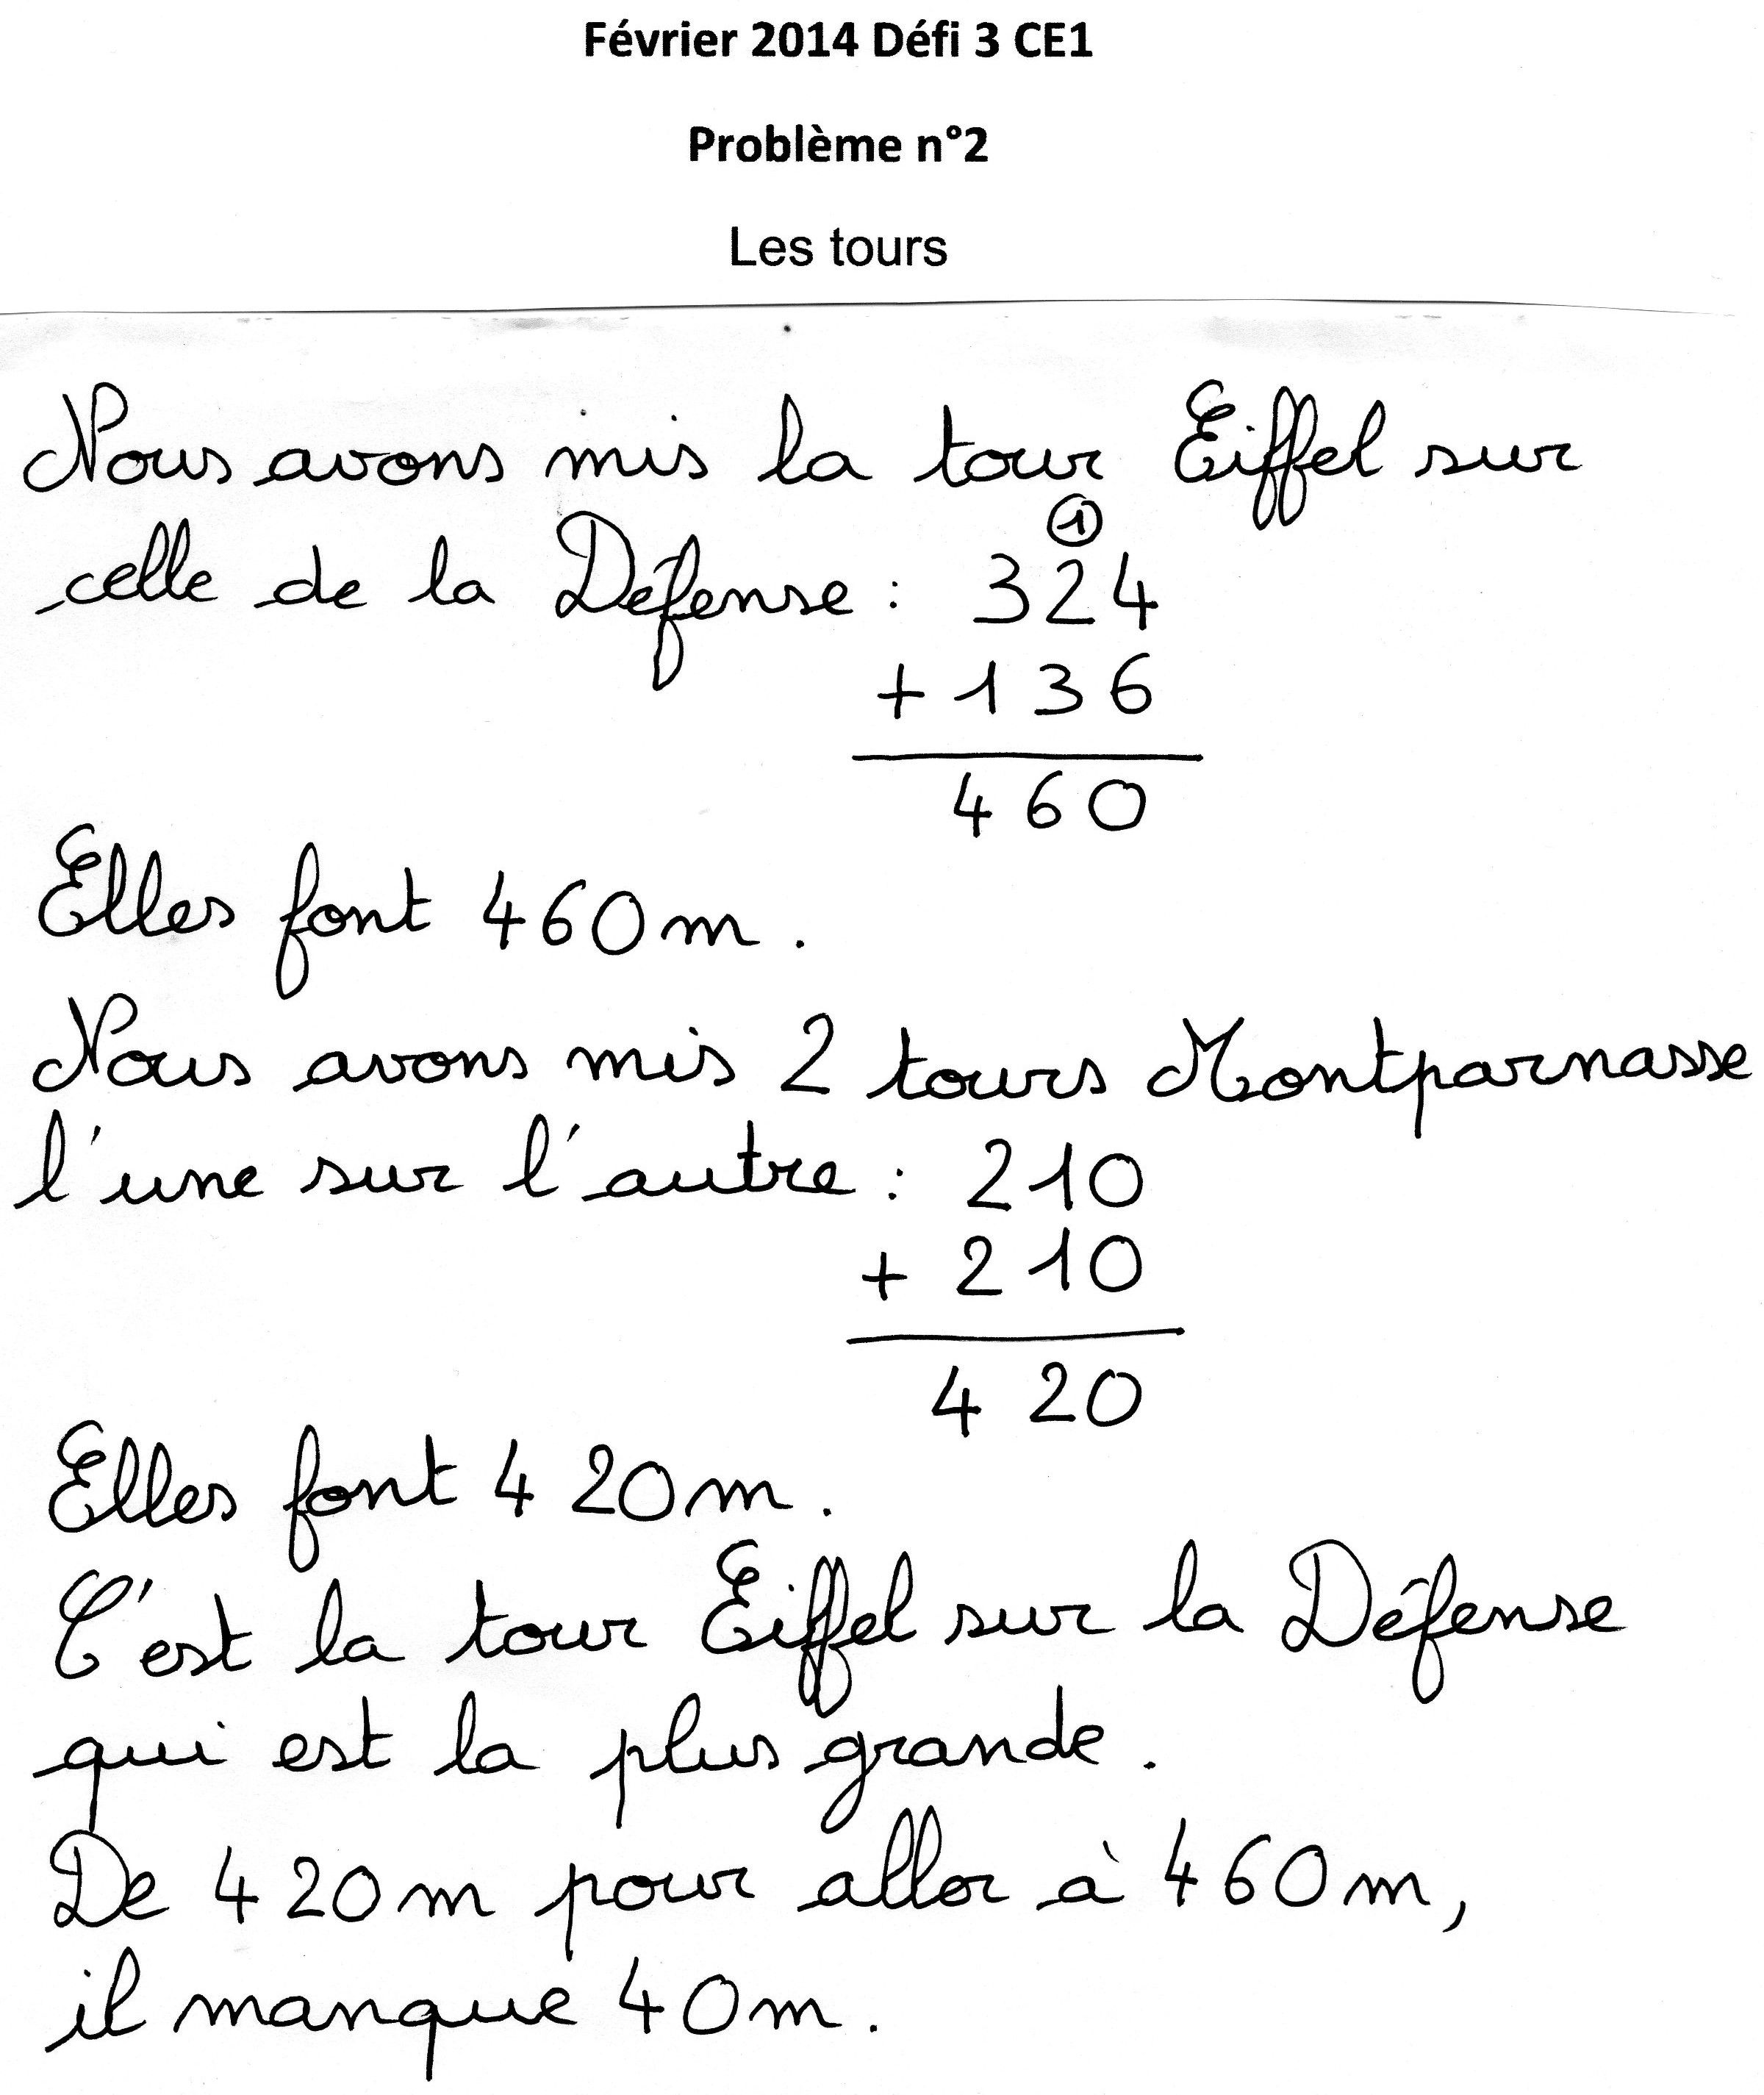 Février 2014 Défi 3 CE1
Problème n°2
Les tours
Nous avons mis la tour Eiffel sur
celle de la Défense : 324
①
+ 136
460
Elles font 460 m.
Nous avons mis 2 tours Montparnasse
l'une sur l'autre : 210
+ 210
420
Elles font 420 m.
C'est la tour Eiffel sur la Défense
qui est la plus grande.
De 420 m pour aller à 460 m,
il manque 40 m.